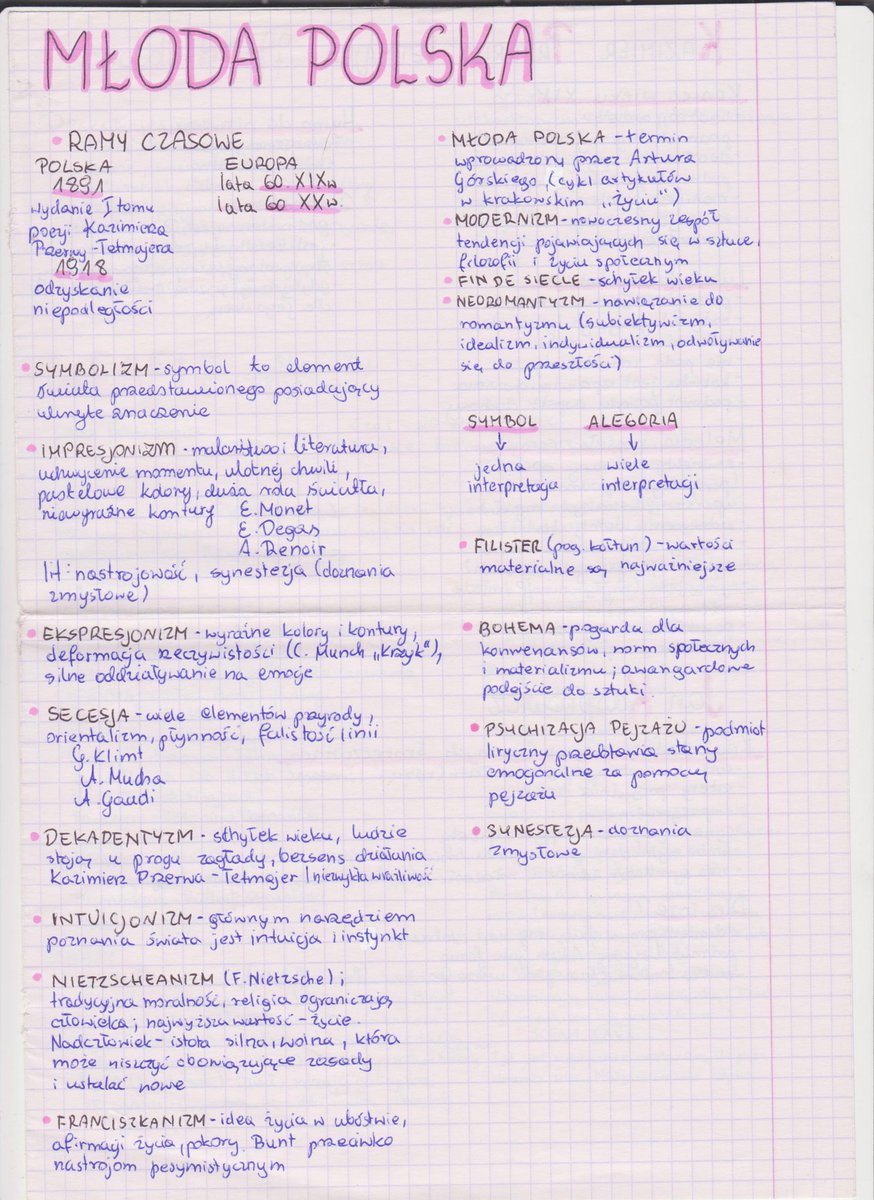 MŁODA POLSKA
• RAMY CZASOWE
POLSKA
1891
wydanie I tomu
poezji Kazimierza
Przerwy-Tetmajera
1918
odzyskanie
niepodległości
EUROPA
lata 60. XIXw
lata 60 XXw.
• SYMBOLIZM - symbol to element
świata przedstawionego posiadający
ukryte znaczenie
• IMPRESJONIZM - malarstwo i literatura,
uchwycenie momentu, ulotnej chwili,
pastelowe kolory, duża rola światła,
niewyraźne kontury E. Monet
E. Degas
A. Renoir
lit: nastrojowość, synestezja (doznania
zmysłowe)
• EKSPRESJONIZM - wyraźne kolory i kontury,
deformacja rzeczywistości (C. Munch „Krzyk"),
silne oddziaływanie na emocje
• SECESJA - wiele elementów przyrody,
orientalizm, płynność, falistość linii
G. Klimt
A. Mucha
A. Gaudi
• DEKADENTYZM - schyłek wieku, ludzie
stoją u progu zagłady, bezsens działania
Kazimierz Przerwa-Tetmajer / niezwykła wrażliwość
• INTUICJONIZM - głównym narzędziem
poznania świata jest intuicja i instynkt
• NIETZSCHEANIZM (F. Nietzsche);
tradycyjna moralność, religia ograniczają
człowieka; najwyższa wartość - życie.
Nadczłowiek - istota silna, wolna, która
może niszczyć obowiązujące zasady
i ustalać nowe
• FRANCISZKANIZM - idea życia w ubóstwie,
afirmacji życia, pokory. Bunt przeciwko
nastrojom pesymistycznym
• MŁODA POLSKA - termin
wprowadzony przez Artura
Górskiego, (cykl artykułów
w krakowskim „Życiu")
• MODERNIZM - nowoczesny zespół
tendencji pojawiających się w sztuce,
filozofii i życiu społecznym
• FIN DE SIECLE - schyłek wieku
• NEOROMANTYZM - nawiązanie do
romantyzmu (subiektywizm,
idealizm, indywidualizm, odwoływanie
się do przeszłości)
SYMBOL ALEGORIA
↓ ↓
jedna wiele
interpretacja interpretacji
• FILISTER (pog. kołtun) - wartości
materialne są najważniejsze
• BOHEMA - pogarda dla
konwenansów, norm społecznych
i materializmu; awangardowe
podejście do sztuki.
• PSYCHIZACJA PEJZAŻU - podmiot
liryczny przedstawia stany
emocjonalne za pomocą
pejzażu
• SYNESTEZJA - doznania
zmysłowe